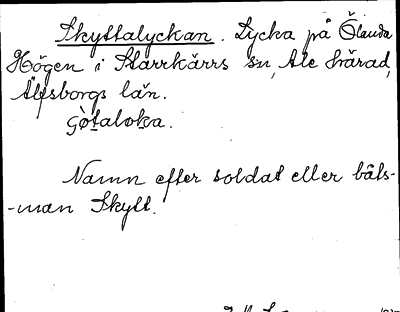 Skyttalyckan. Lycka på Ölanda
Högen i Starrkärrs sn, Ale härad,
Älfsborgs län.
Namn efter soldat eller båts-
-man Skytt.